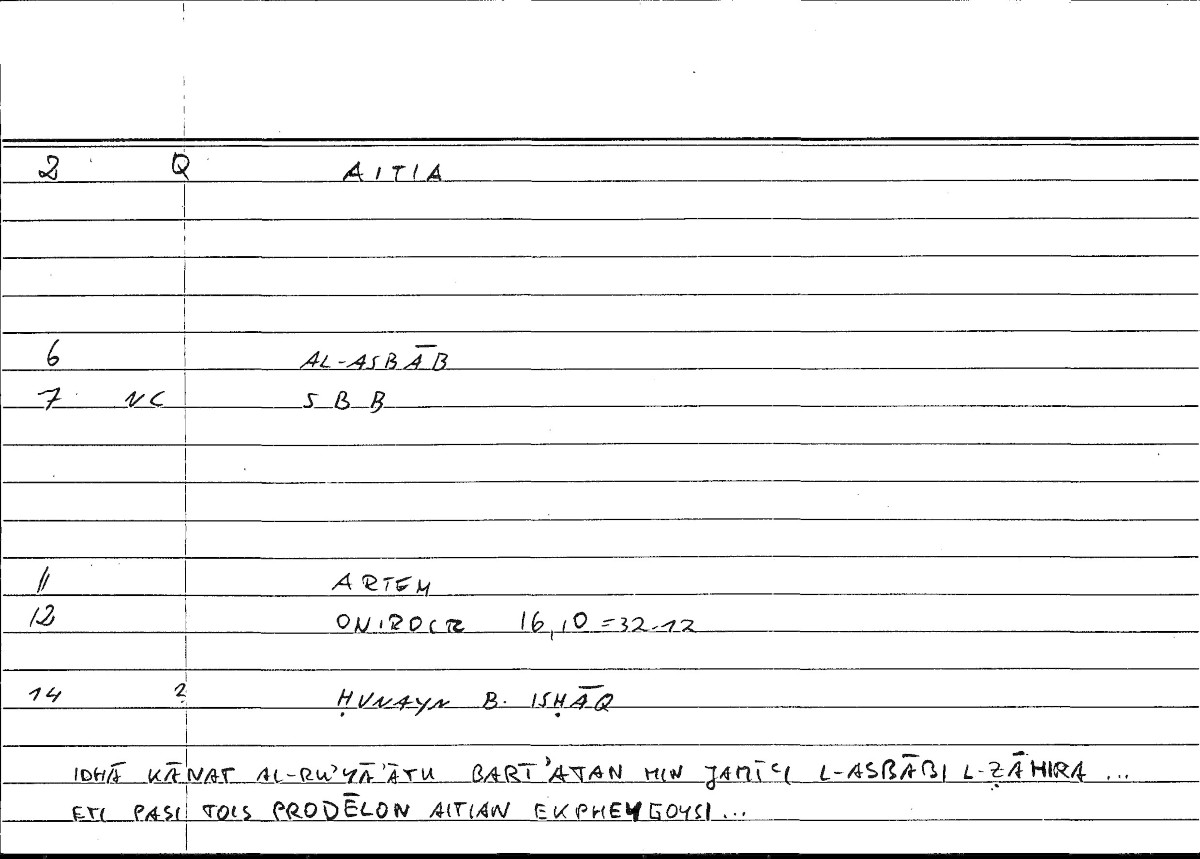 2 Q AITIA
6 AL-ASBĀB
7 NC S B B
11 ARTEM
12 ONIROCR 16,10=32.12
14 ? ḤUNAYN B. ISḤĀQ
IDHĀ KĀNAT AL-RU'YĀ'ĀTU BARĪ'ATAN MIN JAMĪʿI L-ASBĀBI L-ẒĀHIRA ...
ETI PASI TOIS PRODĒLON AITIAN EKPHEYGOYSI ...